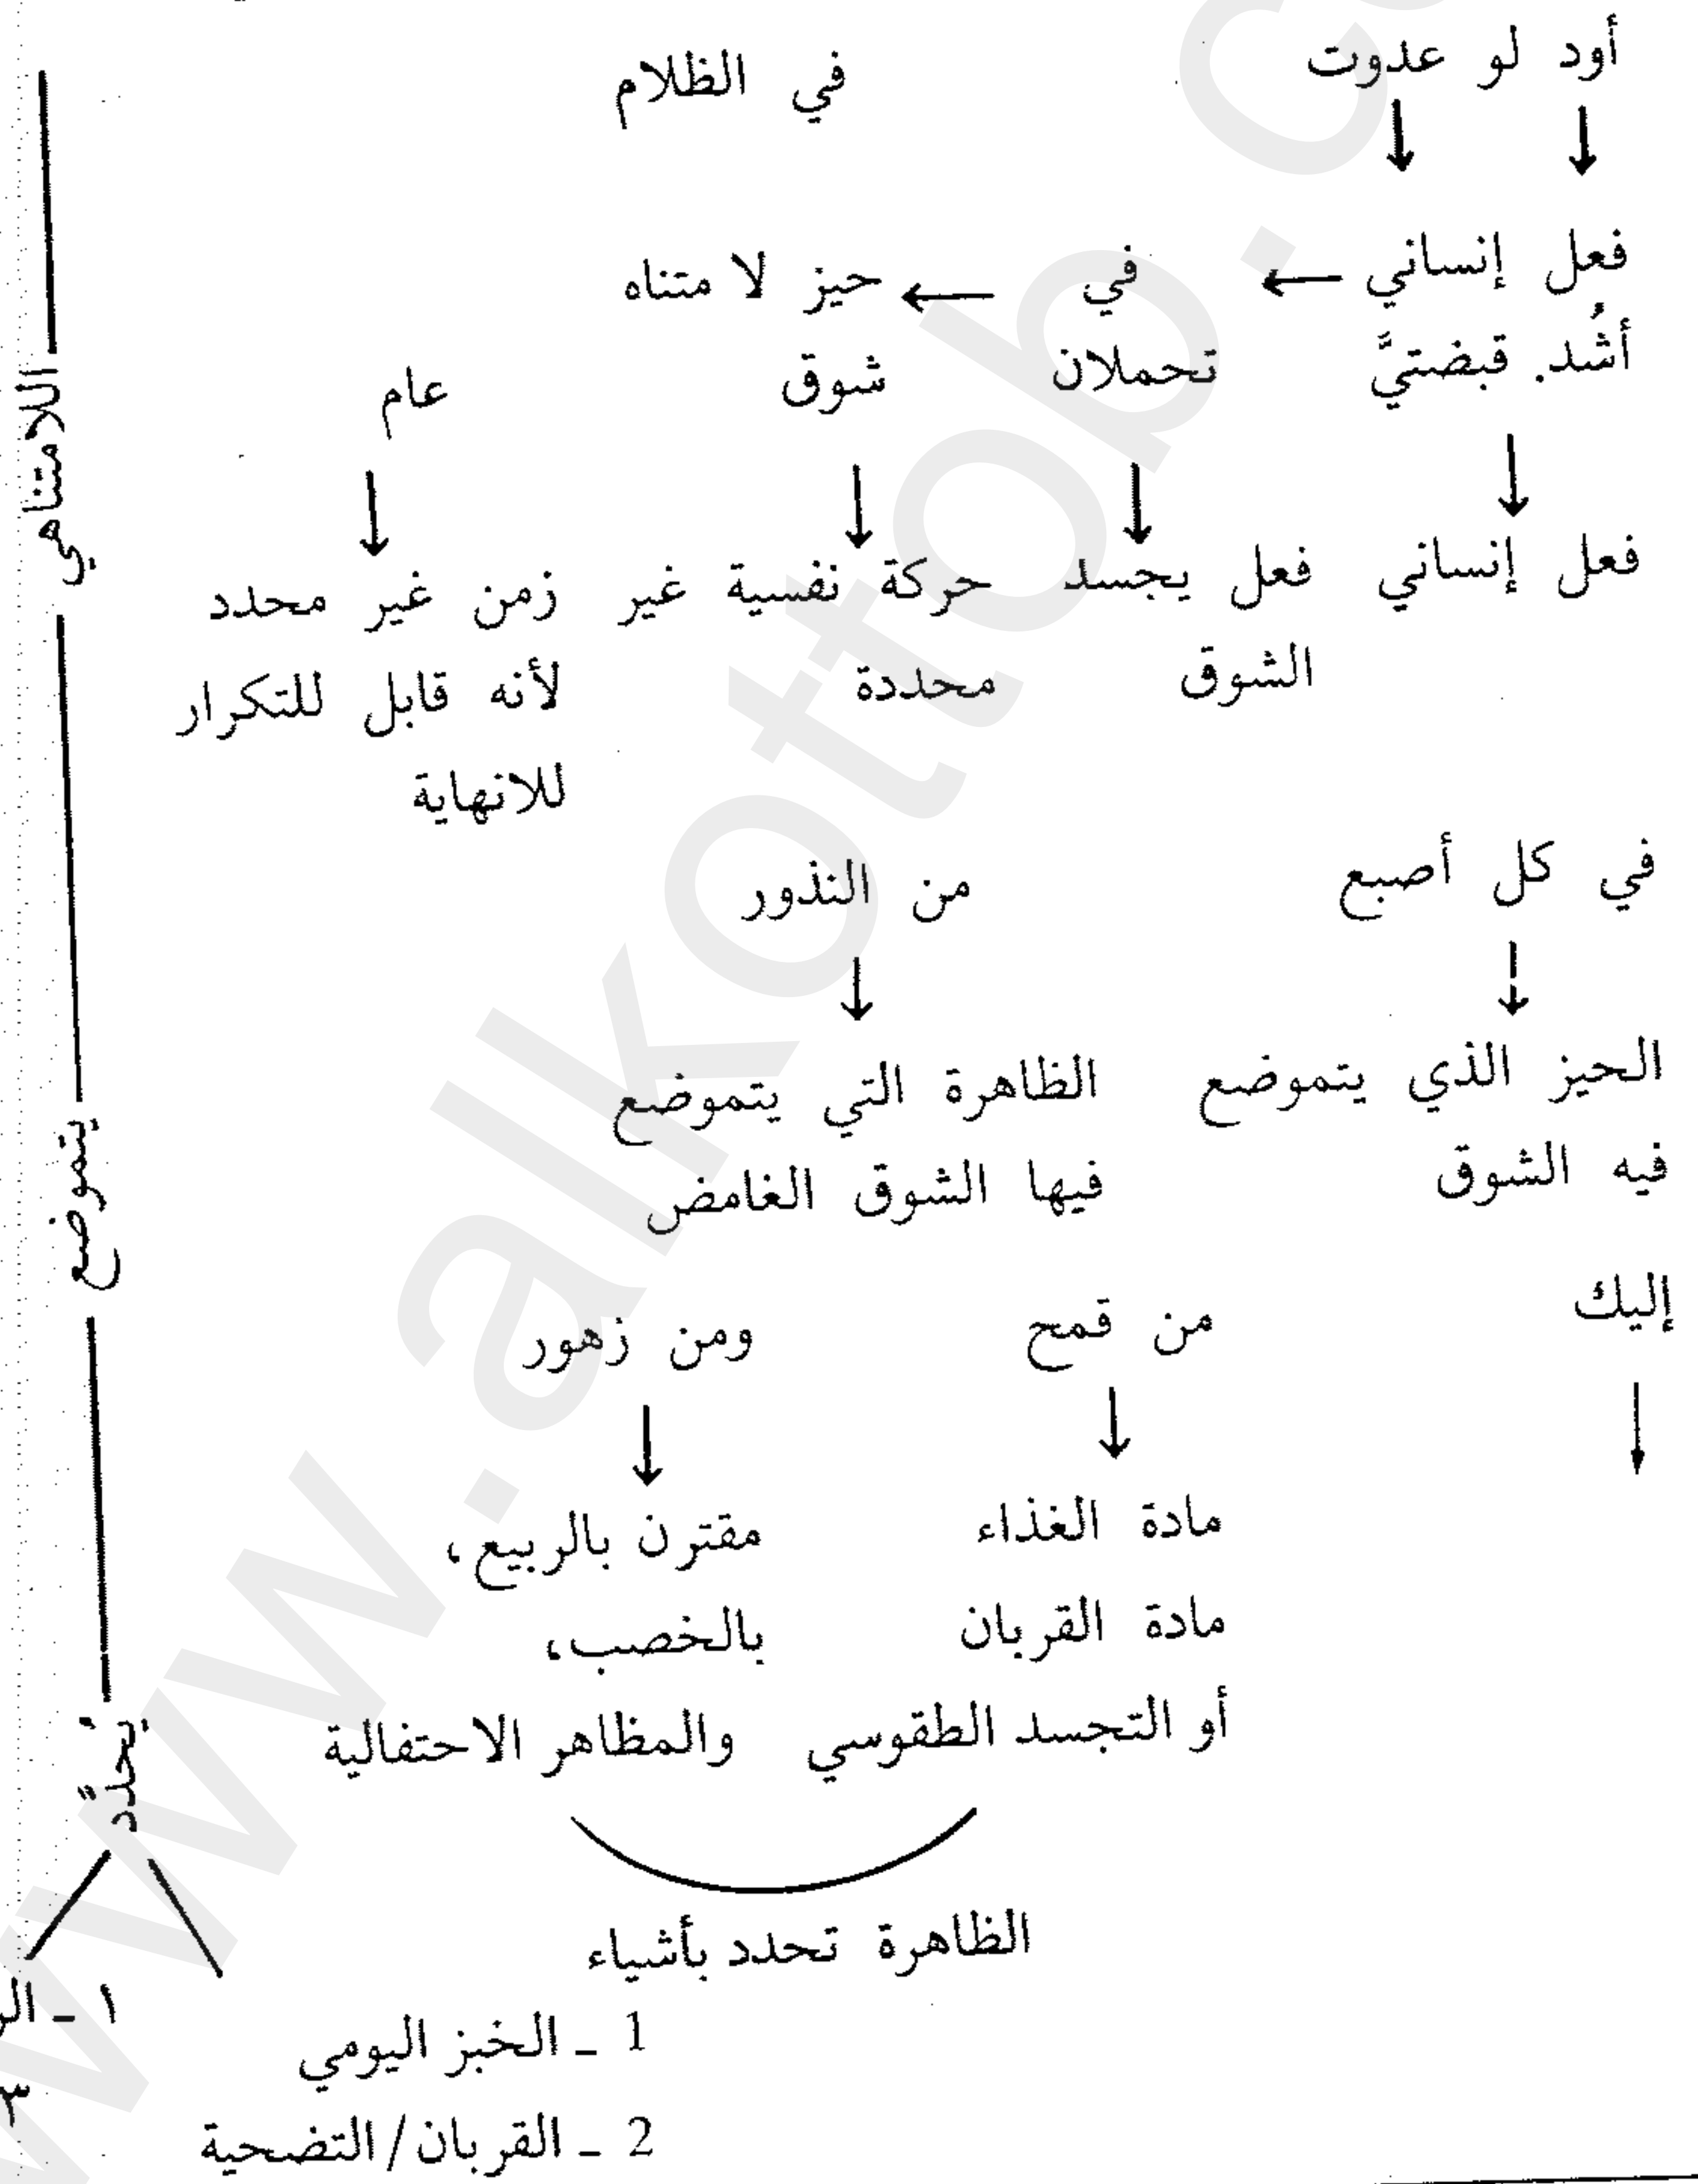 أود لو عدوت في الظلام
فعل إنساني ← في ← حيز لا متناه
أشُد. قبضتيَّ تحملان شوق عام
فعل إنساني فعل يجسد حركة نفسية غير زمن غير محدد
الشوق محددة لأنه قابل للتكرار
للانهاية
في كل أصبع من النذور
الحيز الذي يتموضع الظاهرة التي يتموضع
فيه الشوق فيها الشوق الغامض
إليك من قمح ومن زهور
مادة الغذاء مقترن بالربيع،
مادة القربان بالخصب،
أو التجسد الطقوسي والمظاهر الاحتفالية
الظاهرة تحدد بأشياء
1 ـ الخبز اليومي
2 ـ القربان/التضحية
اللامتناهي
يتموضع
يُحدَّد
١ ـ
٣
www.alkottob.c